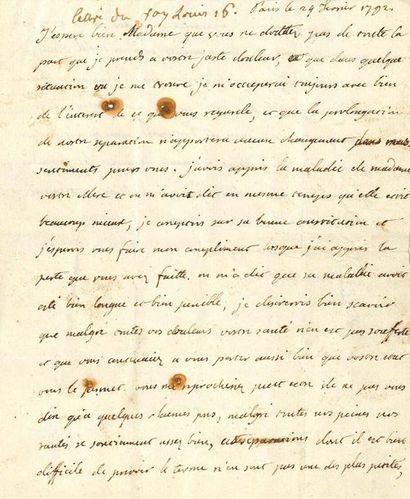 lettre du roy Louis 16. Paris le 24 Fevrier 1792.
J'espere bien Madame que vous ne doutez pas de toute la
part que je prends a votre juste douleur, et que dans quelque
situation ou je me trouve je m'occuperai toujours avec bien
de l'interest de ce qui vous regarde, et que la prolongation
de notre separation n'apportera aucun changement dans mes
sentiments pour vous. j'avois appris la maladie de madame
votre Mere et on m'avoit dit en mesme temps qu'elle etoit
beaucoup mieux, je comptois sur sa bonne constitution et
j'esperois vous faire mon compliment lorsque j'ai appris la
perte que vous avez faitte. on m'a dit que sa maladie avoit
eté bien longue et bien penible, je desirerois bien scavoir
que malgré toutes vos douleurs votre santé n'en est pas
et que vous continuez a vous porter aussi bien que votre etat
vous le permet. vous me reprocheriez peut etre de ne pas vous
dire qu'a quelques rhumes pres, malgré toutes nos peines nos
santes se soutiennent assez bien, dont il est bien
difficile de prevoir le terme n'en sont pas une des plus petites,